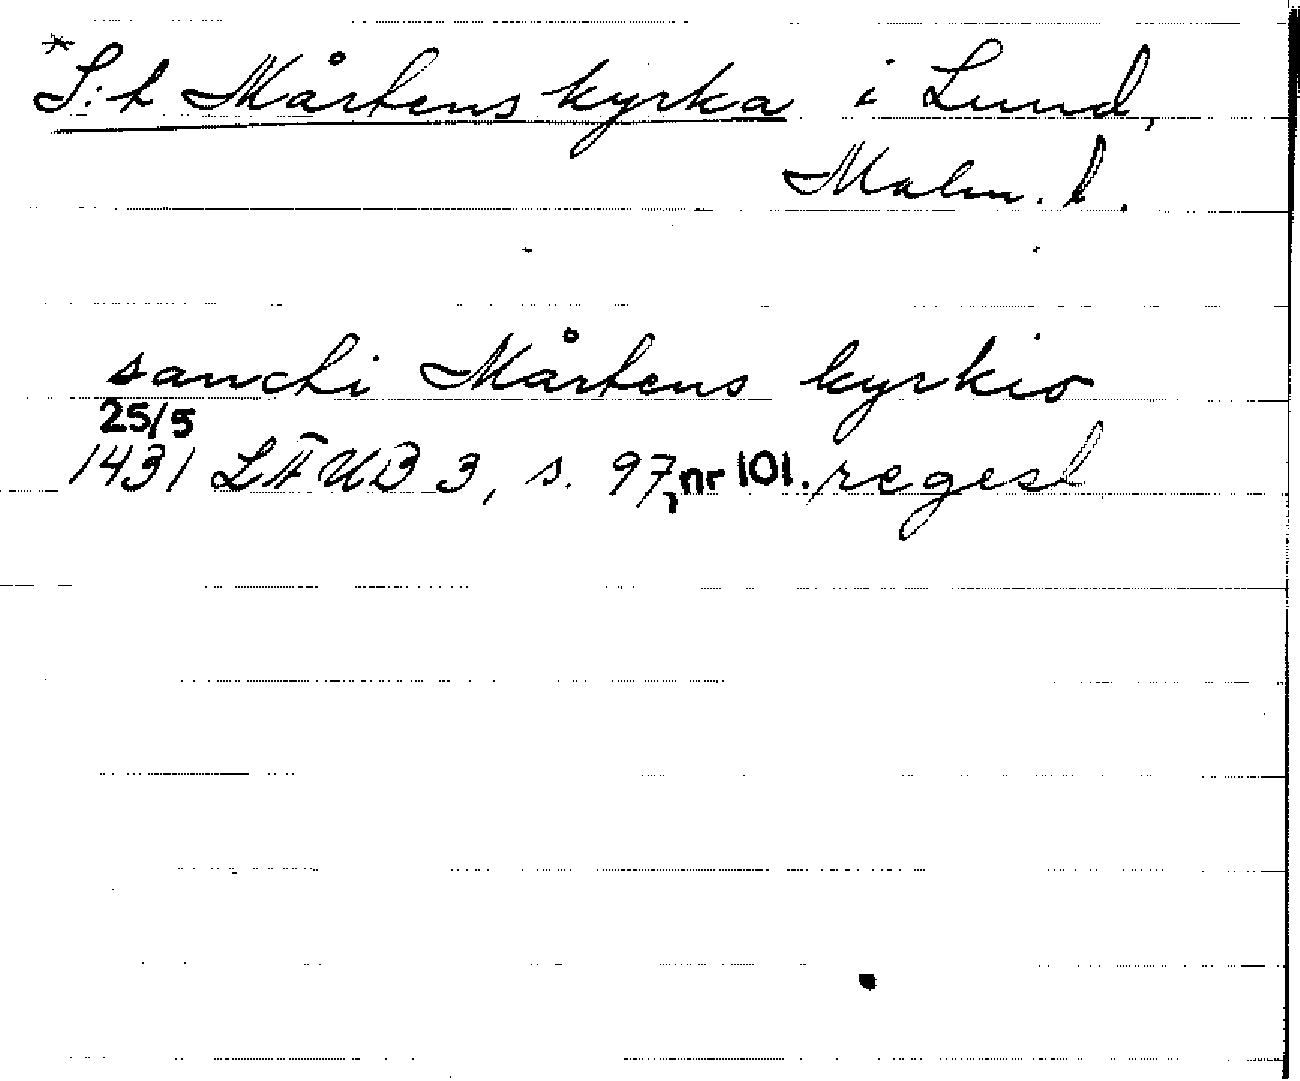 *S:t Mårtens kyrka i Lund,
Malm. l.
sancti Mårtens kyrkio
25/5
1431 LÄUB 3, s. 97, nr 101. regest